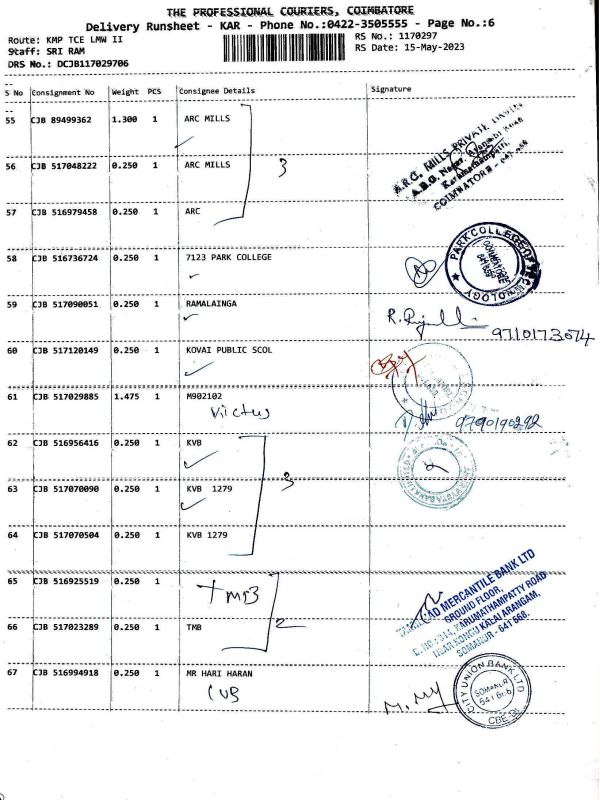 THE PROFESSIONAL COURIERS, COIMBATORE
Delivery Runsheet - KAR - Phone No.:0422-3505555 - Page No.:6
Route: KMP TCE LMW II
RS No.: 1170297
Staff: SRI RAM
RS Date: 15-May-2023
DRS No.: DCJB117029706
S No Consignment No Weight PCS Consignee Details Signature
55 CJB 89499362 1.300 1 ARC MILLS
56 CJB 517048222 0.250 1 ARC MILLS 3
A.R.C. MILLS PRIVATE LIMITED
COIMBATORE -
57 CJB 516979458 0.250 1 ARC
58 CJB 516736724 0.250 1 7123 PARK COLLEGE
PARK COLLEGE OF TECHNOLOGY
COIMBATORE
59 CJB 517090051 0.250 1 RAMALAINGA
9710173074
60 CJB 517120149 0.250 1 KOVAI PUBLIC SCOL
61 CJB 517029885 1.475 1 M902102
Victus
9790190292
62 CJB 516956416 0.250 1 KVB
63 CJB 517070090 0.250 1 KVB 1279 3
64 CJB 517070504 0.250 1 KVB 1279
65 CJB 516925519 0.250 1 TMB
66 CJB 517023289 0.250 1 TMB 2
MERCANTILE BANK LTD
GROUND FLOOR,
314, KARUMATHAMPATTY ROAD
NEAR KONGU KALAI ARANGAM,
SOMANUR - 641 668.
67 CJB 516994918 0.250 1 MR HARI HARAN
CUB
CITY UNION BANK LTD
SOMANUR